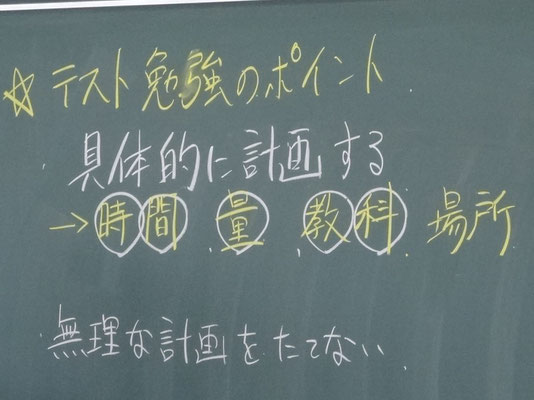 ☆テスト勉強のポイント
具体的に計画する
→時間 量 教科 場所
無理な計画をたてない